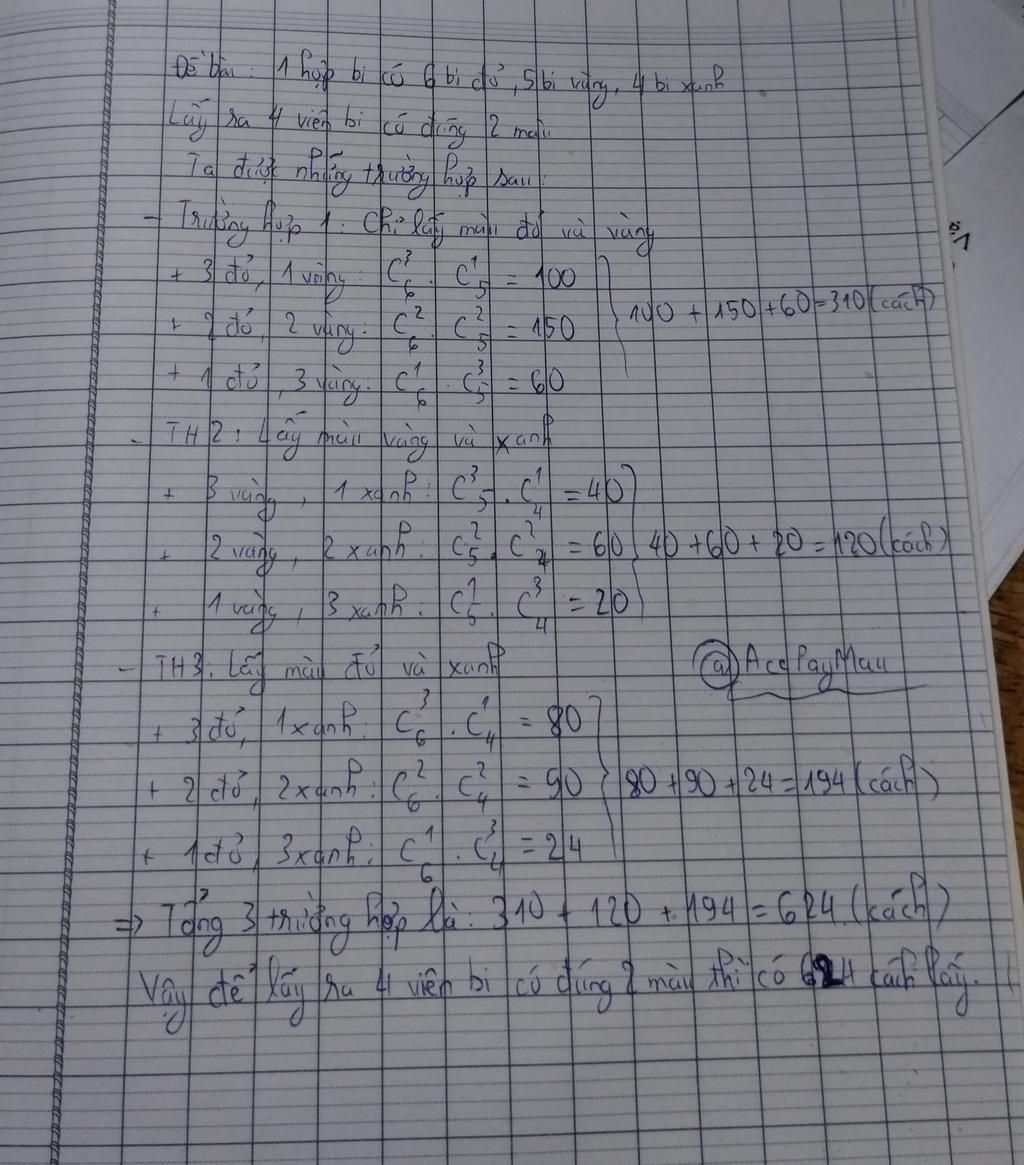 Đề bài: 1 hộp bi có 6 bi đỏ, 5 bi vàng, 4 bi xanh
Lấy ra 4 viên bi có đúng 2 màu
Ta được những trường hợp sau:
- Trường hợp 1: Chỉ lấy màu đỏ và vàng
+ 3 đỏ, 1 vàng: C₆³ . C₅¹ = 100
+ 2 đỏ, 2 vàng: C₆² . C₅² = 150 } 100 + 150 + 60 = 310 (cách)
+ 1 đỏ, 3 vàng: C₆¹ . C₅³ = 60
- TH2: Lấy màu vàng và xanh
+ 3 vàng, 1 xanh: C₅³ . C₄¹ = 40
+ 2 vàng, 2 xanh: C₅² . C₄² = 60 } 40 + 60 + 20 = 120 (cách)
+ 1 vàng, 3 xanh: C₅¹ . C₄³ = 20
- TH3: Lấy màu đỏ và xanh
@AccPayMau
+ 3 đỏ, 1 xanh: C₆³ . C₄¹ = 80
+ 2 đỏ, 2 xanh: C₆² . C₄² = 90 } 80 + 90 + 24 = 194 (cách)
+ 1 đỏ, 3 xanh: C₆¹ . C₄³ = 24
=> Tổng 3 trường hợp là: 310 + 120 + 194 = 624 (cách)
Vậy để lấy ra 4 viên bi có đúng 2 màu thì có 624 cách lấy.